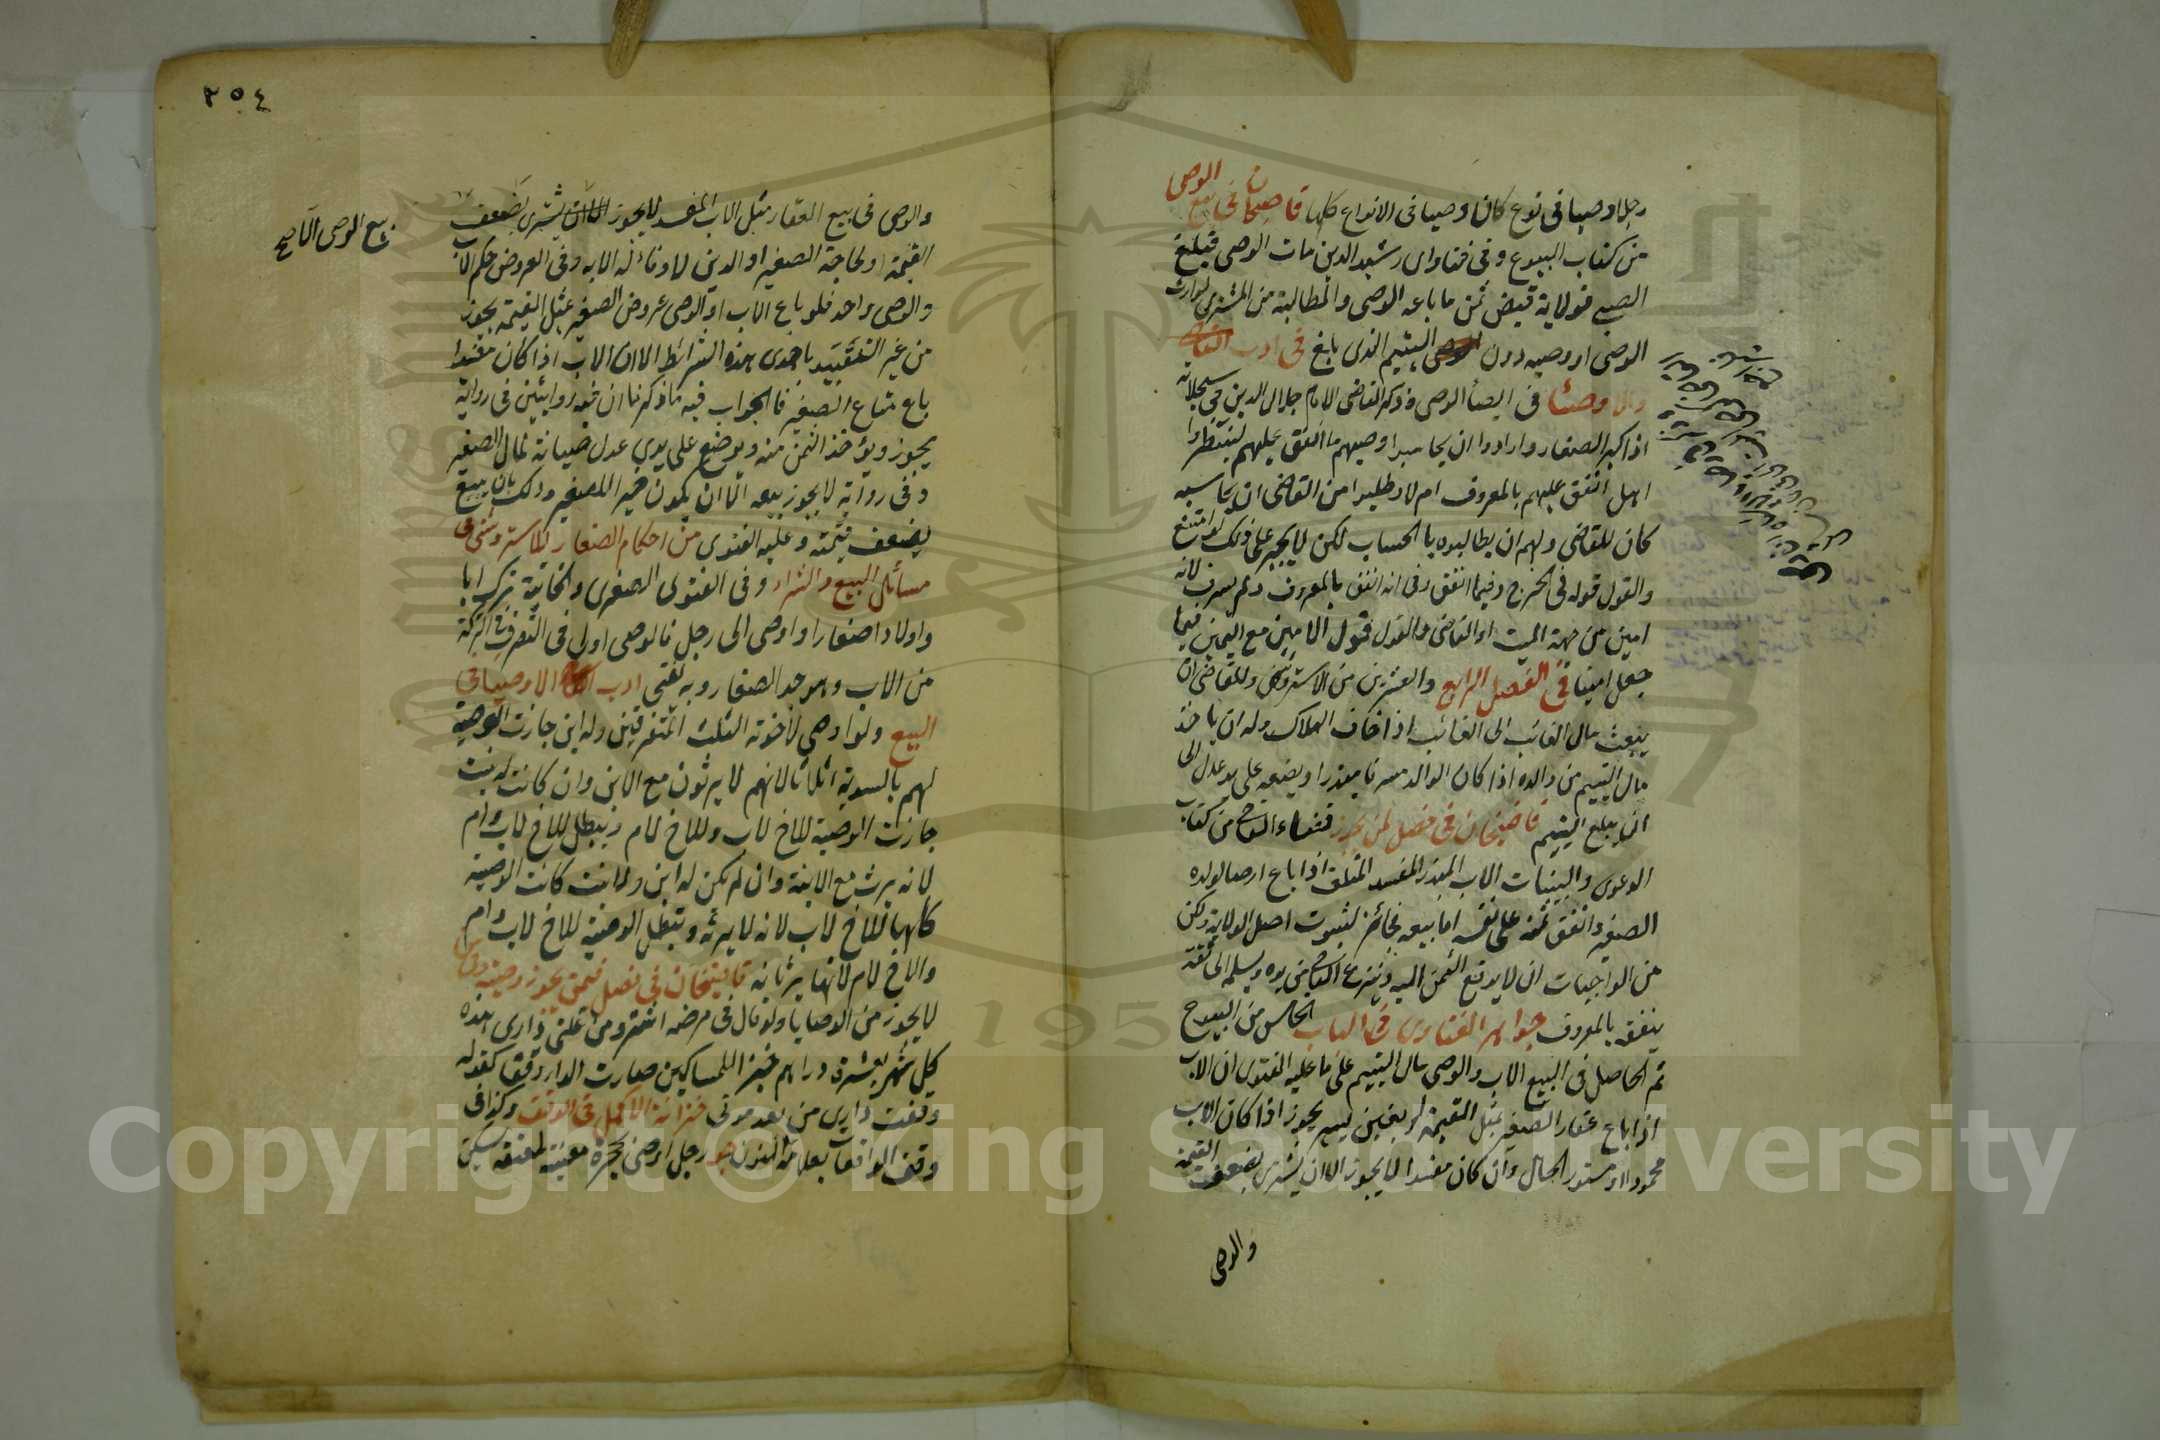 رجلا وصيا في نوع كان وصيا في الانواع كلها قاضيخان في بيع الوصي
من كتاب البيوع وفي فتاوى رشيد الدين مات الوصي فبلغ
الصبي فولاية قبض ثمن ما باعه الوصي والمطالبة من المشتري لوارث
الوصي او وصيه دون اليتيم الذي بلغ في ادب القاضي
والاوصيا في ايصا الوصي وذكر القاضي الامام جلال الدين في سجلاته
اذا كبر الصغار وارادوا ان يحاسبوا وصيهم ما انفق عليهم لينظروا
اهل انفق عليهم بالمعروف ام لا وطلبوا من القاضي ان يحاسبه
كان للقاضي ولهم ان يطالبوه بالحساب لكن لا يجبر على ذلك لو امتنع
والقول قوله في الخرج وفيما انفق وفي انه انفق بالمعروف ولم يسرف لانه
امين من جهة الميت او القاضي والقول قول الامين مع اليمين فيما
جعل امينا في الفصل الرابع والعشرين من الاستروشني وللقاضي ان
يبعث مال الغائب الى الغائب اذا خاف الهلاك وله ان ياخذ
مال اليتيم من والده اذا كان الوالد مسرفا مبذرا ويضعه على يد عدل الى
ان يبلغ اليتيم قاضيخان في فصل لمن يجوز قضاء القاضي من كتاب
الدعوى والبينات الاب المبذر المفسد المتلف اذا باع ارضا لولده
الصغير وانفق ثمنه على نفسه اما بيعه فجائز لثبوت اصل الولاية ولكن
من الواجبات ان لا يدفع الثمن اليه وينزع القاضي من يده ويسلم الى ثقة
ينفق بالمعروف جواهر الفتاوى في الباب الخامس من البيوع
ثم الحاصل في البيع الاب والوصي مال اليتيم على ما عليه الفتوى ان الاب
اذا باع عقار الصغير بمثل القيمة او بغبن يسير يجوز اذا كان الاب
محمودا او مستور الحال وان كان مفسدا لا يجوز الا ان يشتري بضعف القيمة
والوصي
٢٥٤
بيع الوصي
والوصي في بيع العقار مثل الاب المفسد لا يجوز الا ان يشتري بضعف
القيمة او لحاجة الصغير او الدين لا وفاء له الا به وفي العروض حكم الاب
والوصي واحد فلو باع الاب او الوصي عروض الصغير بمثل القيمة يجوز
من غير التقييد باحدى هذه الشرائط الا ان الاب اذا كان مفسدا
باع متاع الصغير فالجواب فيه ما ذكرنا ان فيه روايتين في رواية
يجوز ويؤخذ الثمن منه ويوضع على يدي عدل صيانة لمال الصغير
وفي رواية لا يجوز بيعه الا ان يكون خيرا للصغير وذلك بان يبيع
بضعف قيمته وعليه الفتوى من احكام الصغار للاستروشني في
مسائل البيع والشراء وفي الفتوى الصغرى والخانية ترك ابا
واولادا صغارا واوصى الى رجل فالوصي اولى في التصرف في التركة
من الاب وهو جد الصغار وبه نفتي ادب الاوصيا في
البيع ولو اوصى لاخوته الثلث المتفرقين وله ابن جازت الوصية
لهم بالسوية اثلاثا لانهم لا يرثون مع الابن وان كانت له بنت
جازت الوصية للاخ لاب وللاخ لام ويبطل للاخ لاب وام
لانه يرث مع الابنة وان لم يكن له ابن ولا بنت كانت الوصية
كلها للاخ لاب لانه لا يرثه وتبطل الوصية للاخ لاب وام
والاخ لام لانهما يرثانه قاضيخان في فصل فيمن يجوز وصيته ومن
لا يجوز من الوصايا ولو قال في مرضه اشتروا من غلة داري هذه
كل شهر بعشرة دراهم خبزا للمساكين صارت الدار وقفا كقوله
وقفت داري من بعد موتي خزانة الاكمل في الوقف وكذا في
وقف الواقعات بعلامة النون رجل اوصى بحجرة معينة لمعتقه تسكن